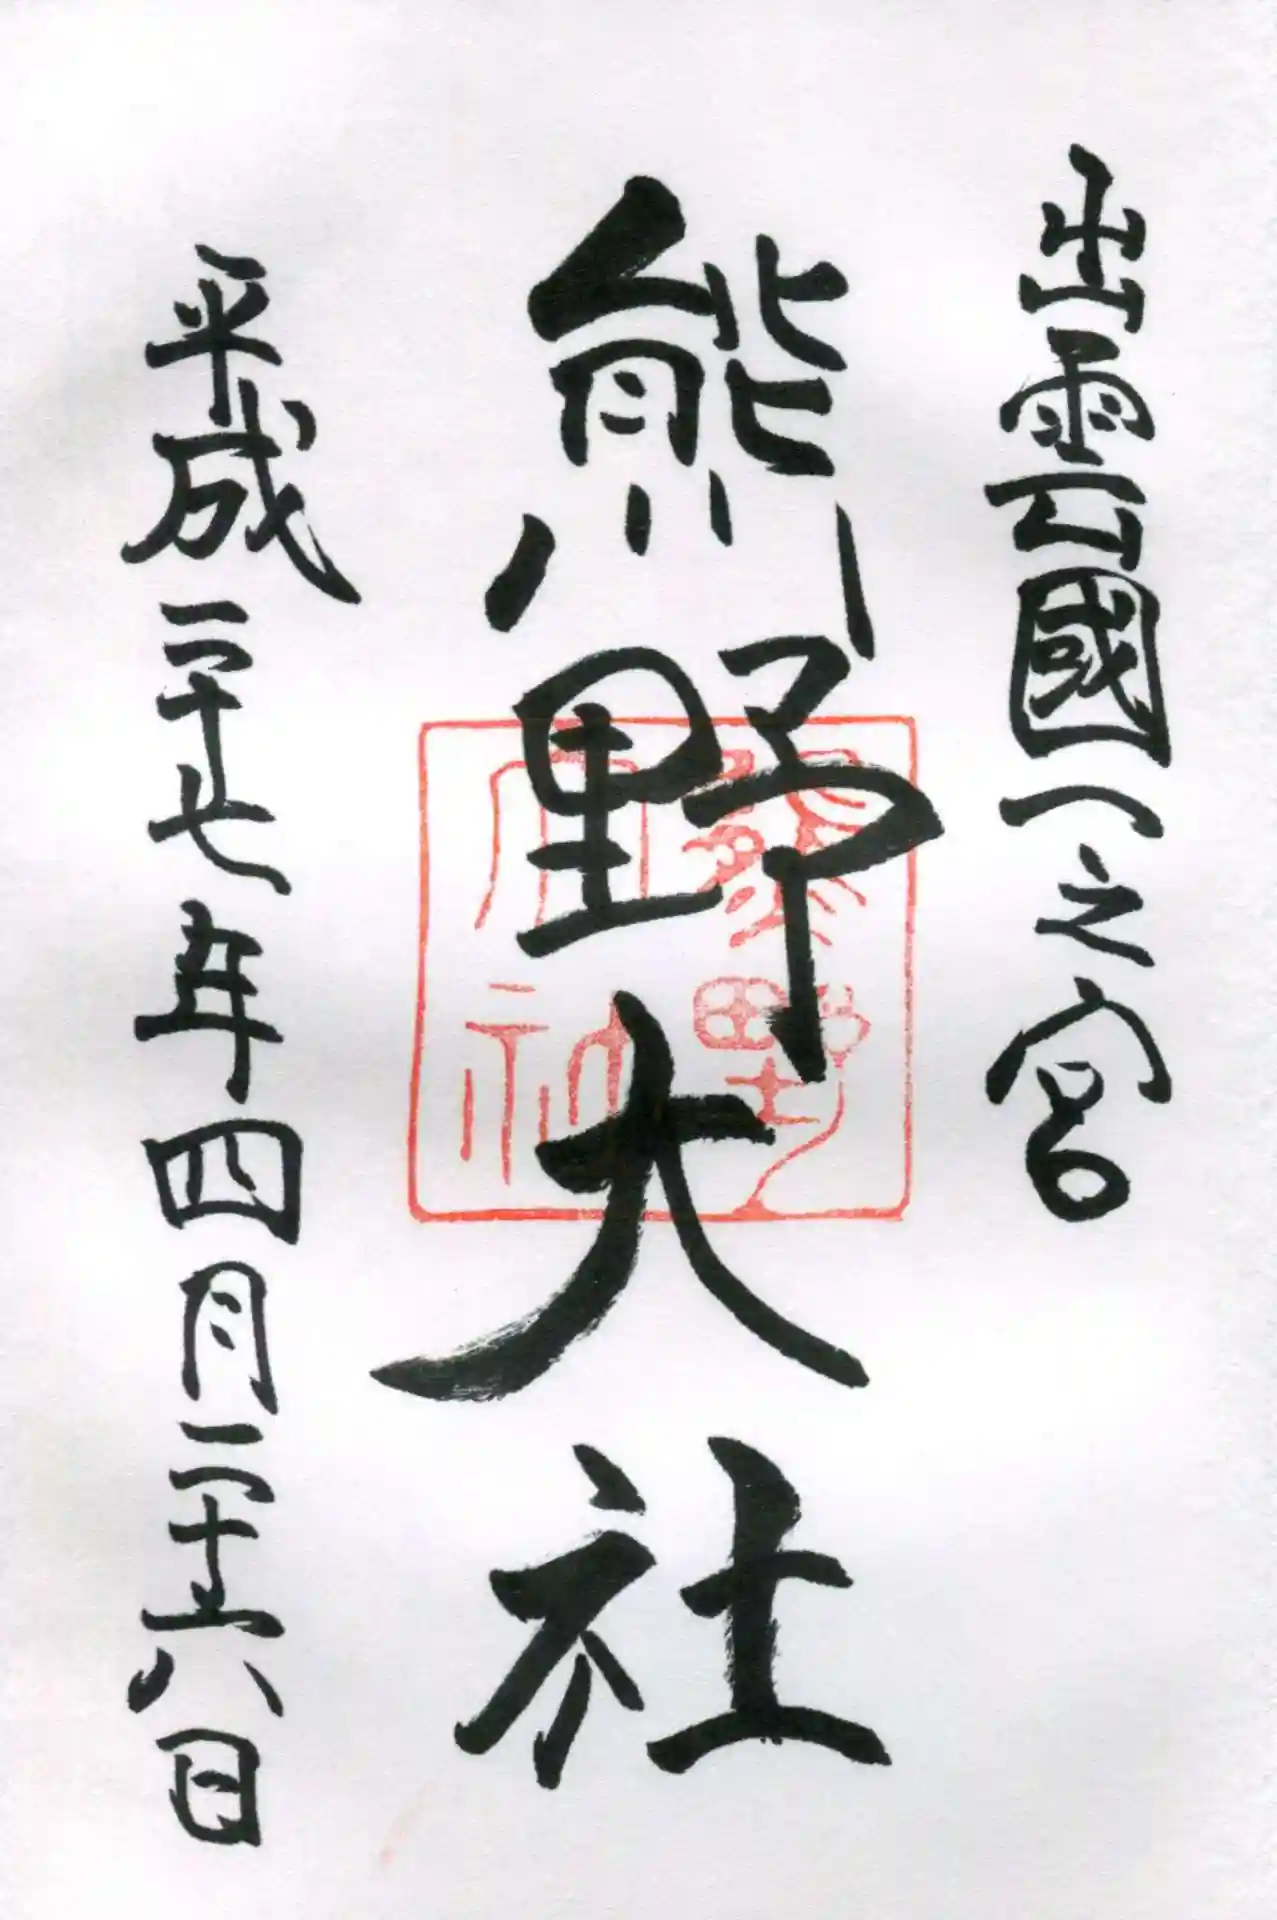 出雲國一之宮
熊野大社
熊野大社
平成二十七年四月二十六日